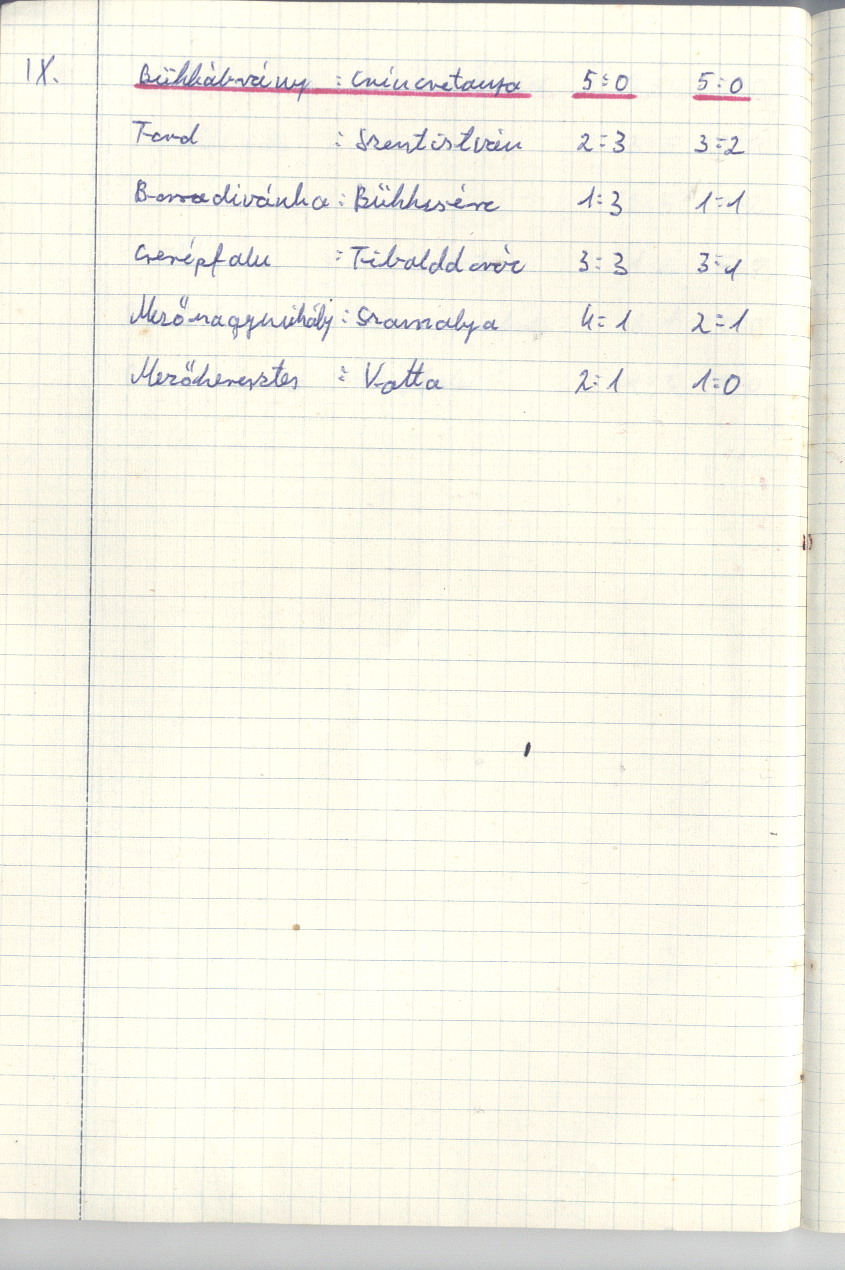 IX. Bükkábrány : Csincsetanya 5:0 5:0
Tard : Szentistván 2:3 3:2
Borsodivánka : Bükkzsérc 1:3 1:1
Cserépfalu : Tibolddaróc 3:3 3:1
Mezőnagymihály : Szomolya 4:1 2:1
Mezőkeresztes : Vatta 2:1 1:0